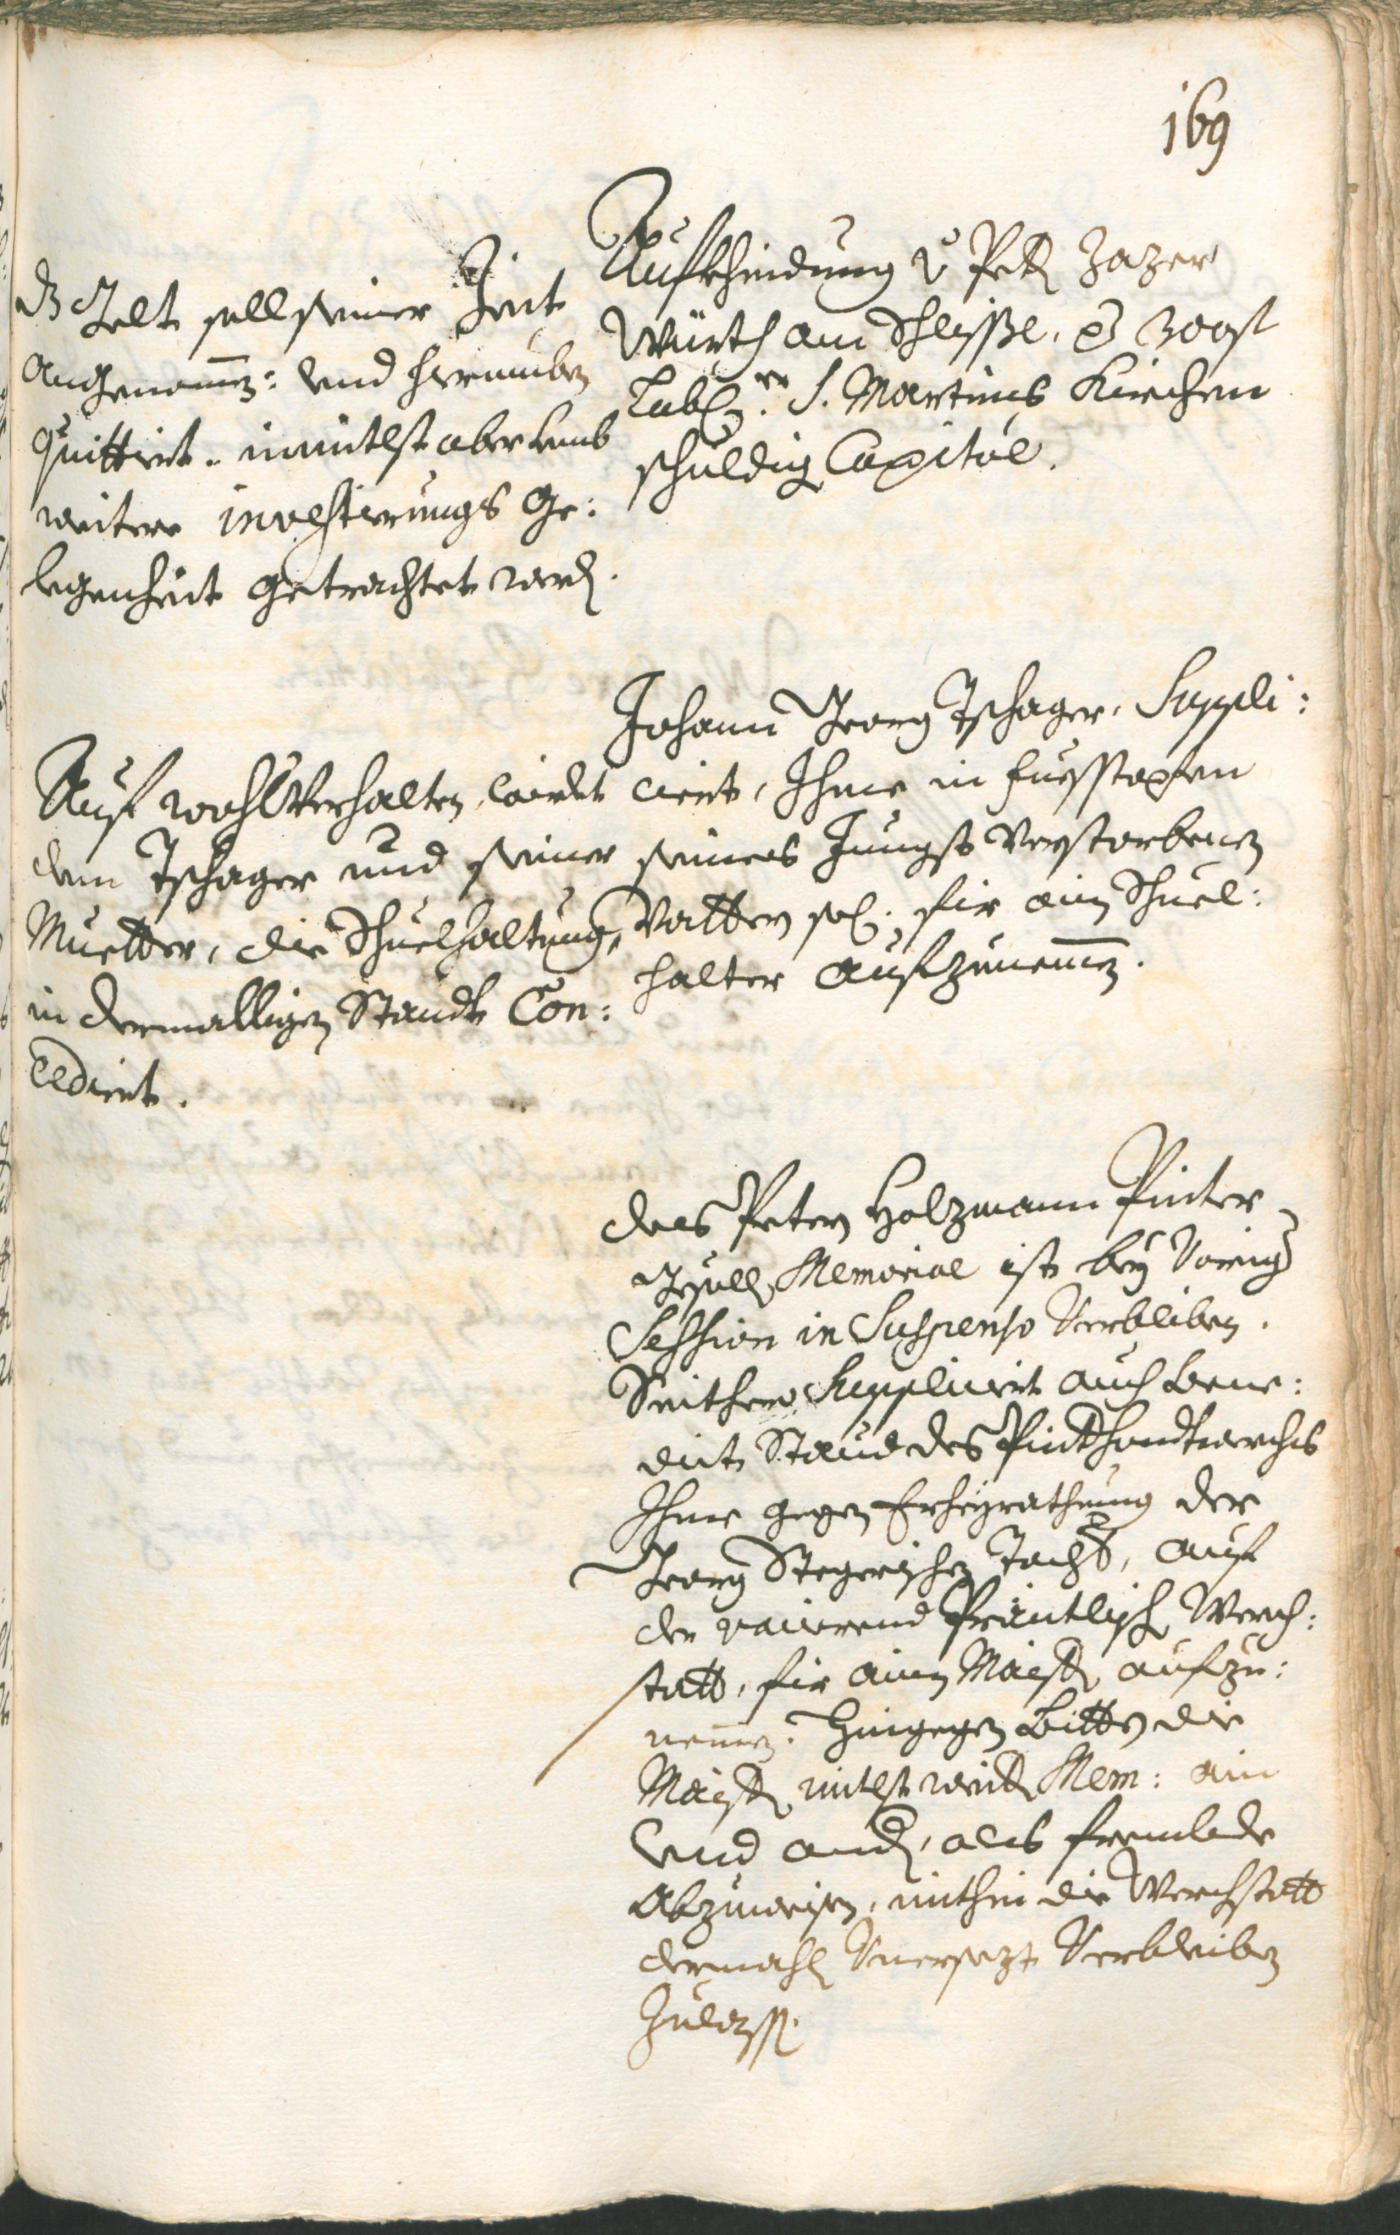 169
Aufkhindung v Petr Zazer
Würth am Schlissl. p 300 fl
Lab. S. Martins Kirchen
schuldig Capital.
dz Gelt soll seiner Zeit
angenomen: und hierumben
quittirt. inmitlst aber umb
weitere investierungs Ge:
legenheit getrachtet werd.
Johann Georg Tschager, Suppli:
ciert, Ihme in fuesstapfen
seines Jungst verstorbenen
Vattern sel. fir ain Schuel:
halter aufzunemen.
Auf wohlverhalten, wirdet
dem Tschager und seiner
Muetter, die Schuelhaltung,
in dermalligen Standt Con:
cedirt.
des Peter Holzmann Pinter
Gsell Memorial ist bey voriger
Session in Suspenso verbliben.
Seithero Supplicirt auch Bene:
dict Staud des Pinthandtwerchs
Ihme gegen Erheyrathung der
Georg Stegerischen Tocht, auf
der vacierend Präntlisch Werch:
statt, fir ainen Maister aufzu:
nemen. Hingegen Bitten die
Maister mitlst weiter Mem: ain
und ander, als frembde
abzuweisen, mithin die Werchstatt
dermahl Unersezt Verbleiben
Zulassen.